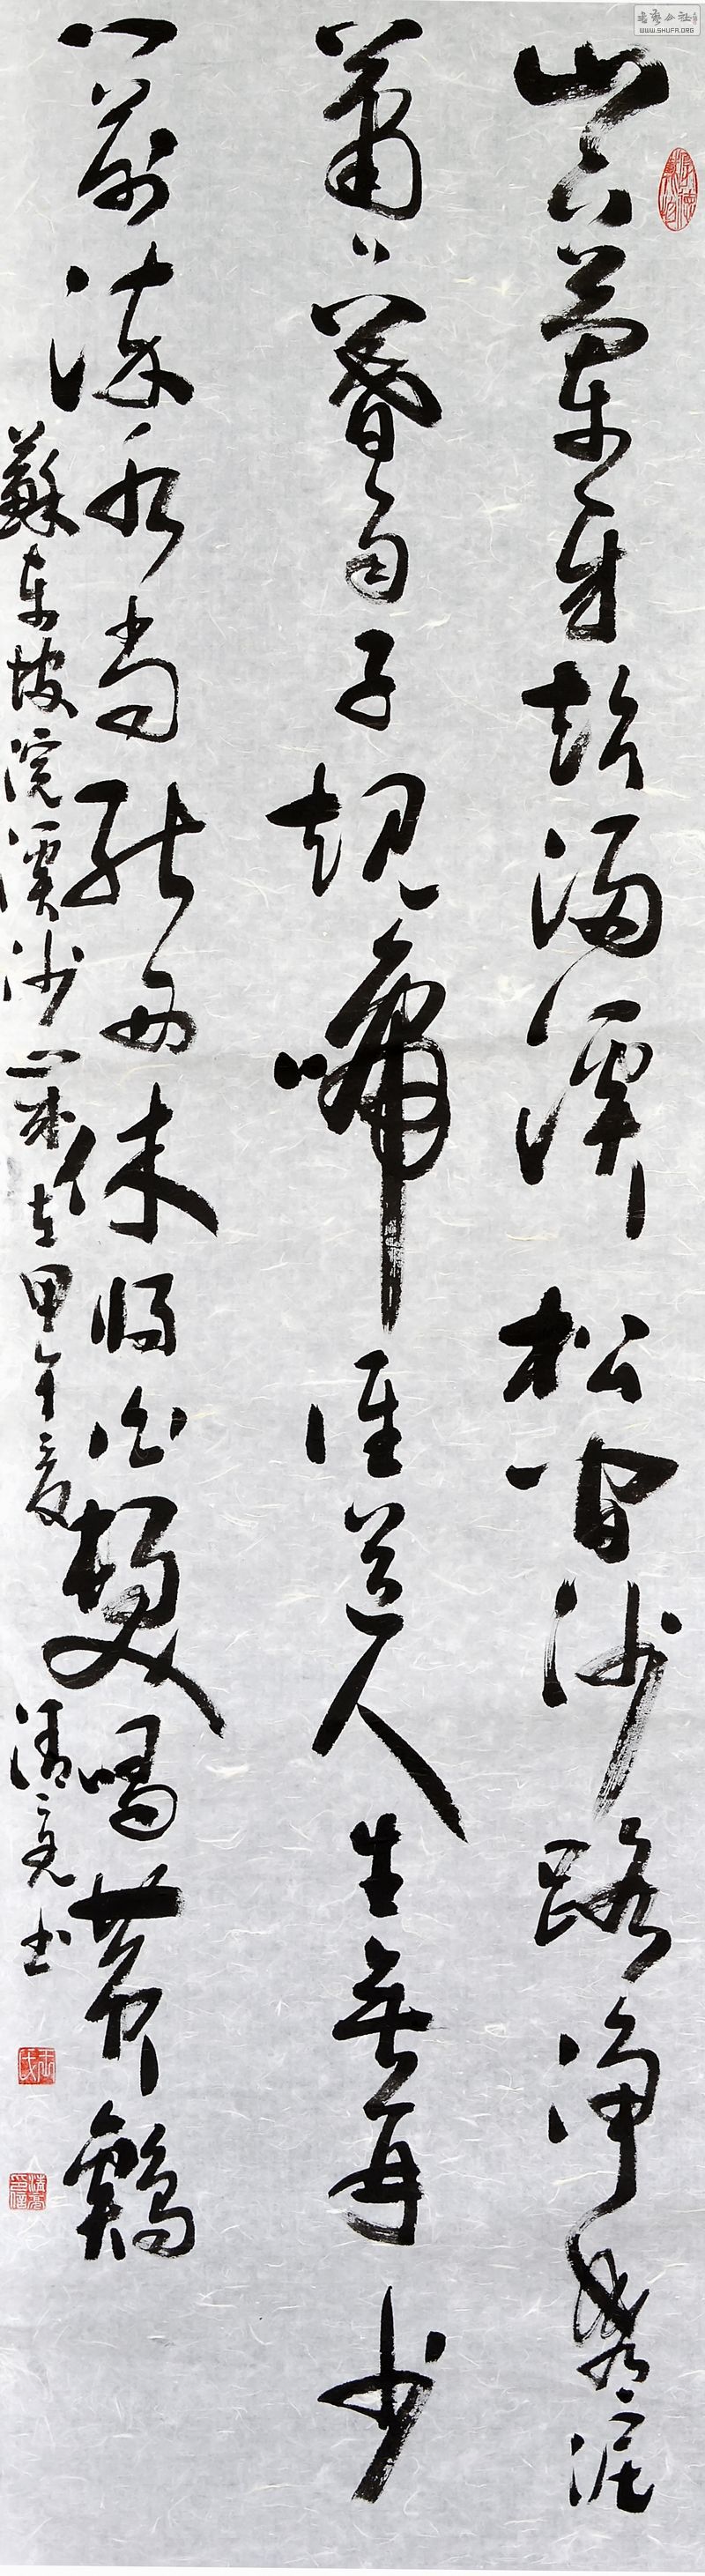 書法公社
WWW.SHUFA.ORG
厚德載物
山下蘭芽短浸溪松間沙路淨無泥
蕭〻暮雨子規啼誰道人生無再少
門前流水尚能西休將白髮唱黃鷄
蘇東坡浣溪沙歲在甲午夏清亮书
清亮印信